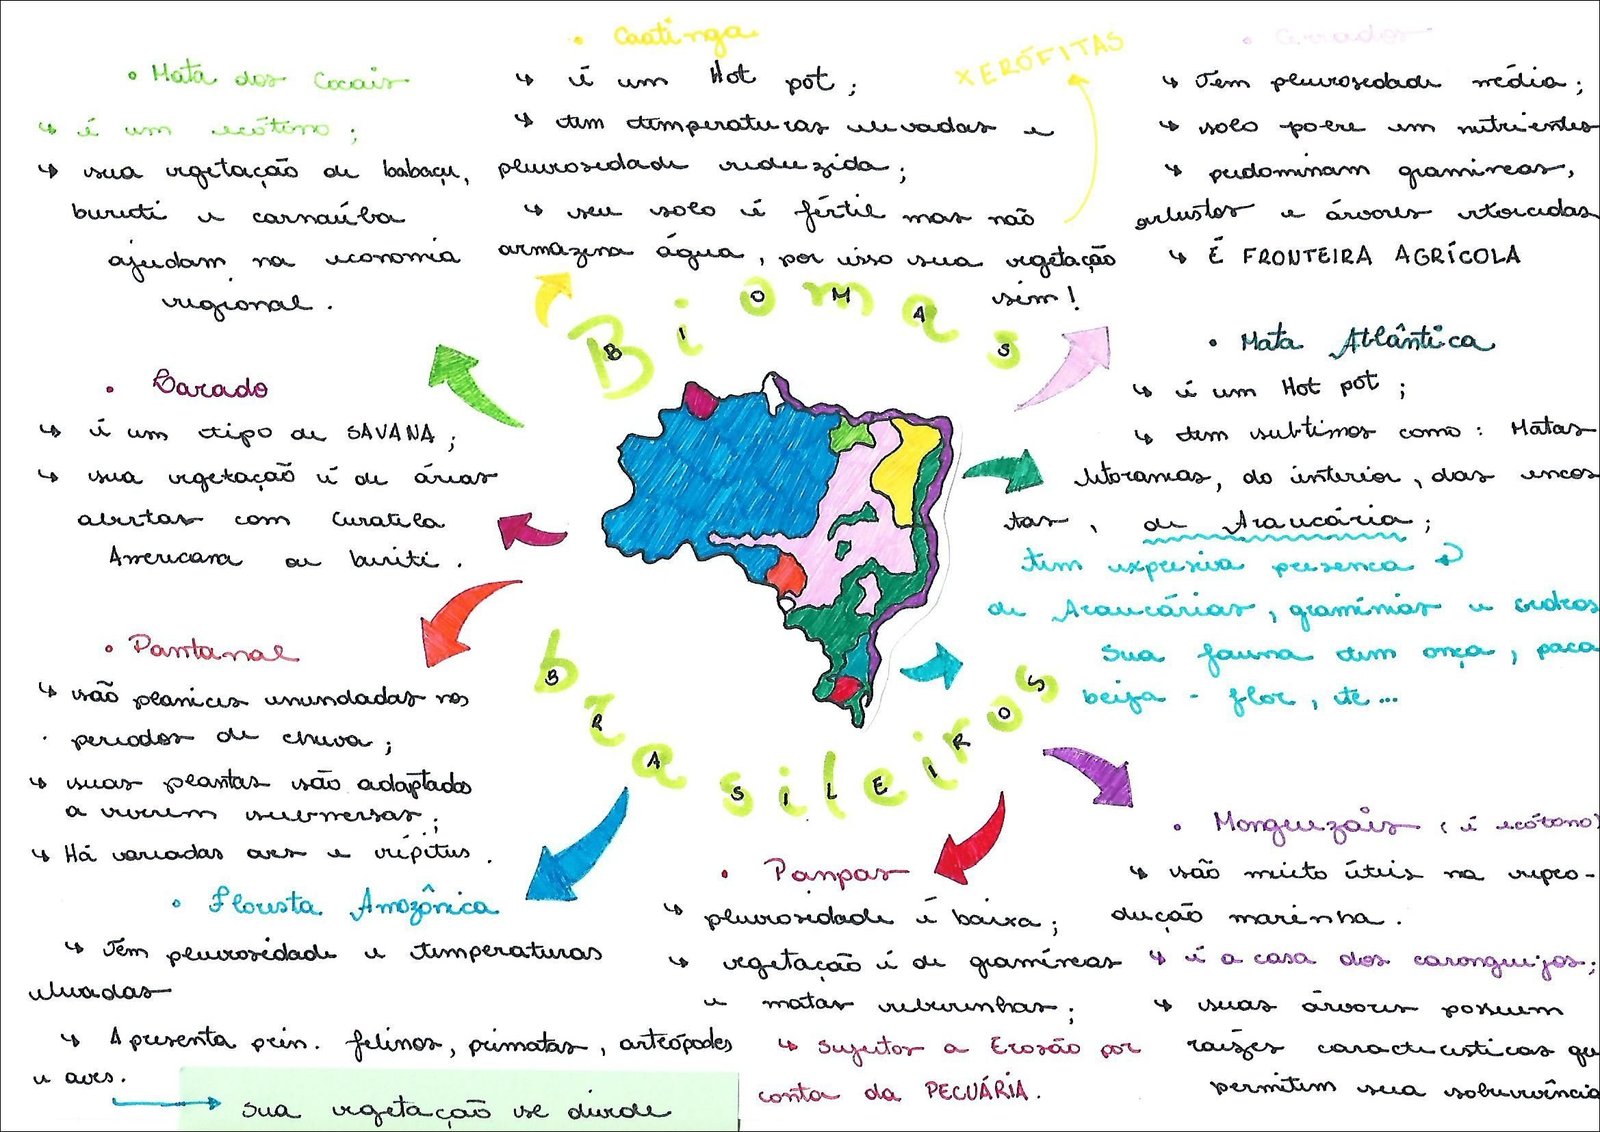 • Mata dos Cocais
↳ é um ecótono;
↳ sua vegetação de babaçu,
buriti e carnaúba
ajudam na economia
regional.
• Caatinga
↳ é um Hot pot;
↳ tem temperaturas elevadas e
pluviosidade reduzida;
↳ seu solo é fértil mas não
armazena água, por isso sua vegetação
XERÓFITAS
• Cerrados
↳ Tem pluviosidade média;
↳ solo pobre em nutrientes
↳ predominam gramíneas,
arbustos e árvores retorcidas
↳ É FRONTEIRA AGRÍCOLA
Biomas
BIOMAS
• Mata Atlântica
↳ é um Hot pot;
↳ tem subtimos como: Matas
litoraneas, do interior, das encos
tas, de Araucária;
tem expresiva presenca
de Araucárias, gramínias e
Sua fauna tem onça, paca
beija-flor, etc...
•
↳ é um tipo de SAVANA;
↳ sua vegetação é de áreas
abertas com Curatela
Americana ou buriti.
• Pantanal
↳ são planices inundadas nos
periodos de chuva;
↳ suas plantas são adaptadas
a viverem submersas;
↳ Há variadas aves e répteis.
brasileiros
BRASILEIROS
• Floresta Amazônica
↳ Tem pluviosidade e temperaturas
elevadas
↳ Apresenta prin. felinos, primatas, artrópodes
e aves.
sua vegetação se divide
• Panpas
↳ pluviosidade é baixa;
↳ vegetação é de gramíneas
e matas
↳ Sujeitos a Erosão por
conta da PECUÁRIA.
• Manguezais (é ecótono)
↳ são muito úteis na repro-
dução marinha.
↳ é a casa dos caranguejos;
↳ suas árvores possuem
raízes caracteristicas que
permitem sua sobrevivência